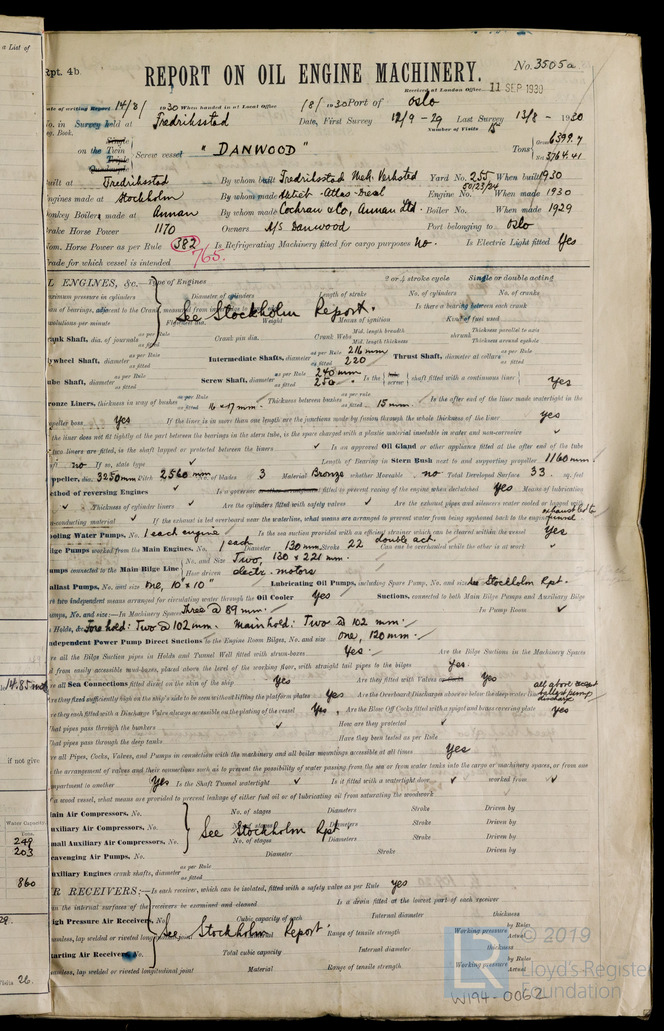 a List of
Rpt. 4b.
No. 3505a
REPORT ON OIL ENGINE MACHINERY.
Received at London Office 11 SEP 1930
Date of writing Report 14/8/ 1930 When handed in at Local Office 18/ 1930 Port of Oslo
No. in Survey held at Fredriksstad Date, First Survey 12/9 - 29 Last Survey 13/8 - 1930
Reg. Book. Number of Visits 15
on the Single Twin Triple Quadruple Screw vessel "DANWOOD" Tons Gross 6399.7 Net 3764.41
Built at Fredriksstad By whom built Fredriksstad Mek. Verksted Yard No. 255 When built 1930
Engines made at Stockholm By whom made Aktieb. Atlas-Diesel Engine No. 50123/24 When made 1930
Donkey Boilers made at Annan By whom made Cochran & Co, Annan Ltd. Boiler No. When made 1929
Brake Horse Power 1170 Owners A/S Danwood Port belonging to Oslo
Nom. Horse Power as per Rule 382 765. Is Refrigerating Machinery fitted for cargo purposes No. Is Electric Light fitted Yes
Trade for which vessel is intended
L ENGINES, &c. Type of Engines 2 or 4 stroke cycle Single or double acting
Maximum pressure in cylinders Diameter of cylinders Length of stroke No. of cylinders No. of cranks
See Stockholm Report.
Span of bearings, adjacent to the Crank, measured from Is there a bearing between each crank
Revolutions per minute Flywheel dia. Weight Means of ignition Kind of fuel used
Crank Shaft, dia. of journals as per Rule as fitted Crank pin dia. Crank Webs Mid. length breadth Mid. length thickness shrunk Thickness parallel to axis Thickness around eyehole
Flywheel Shaft, diameter as per Rule as fitted Intermediate Shafts, diameter as per Rule 216 mm as fitted 220 Thrust Shaft, diameter at collars as per Rule as fitted
Tube Shaft, diameter as per Rule as fitted Screw Shaft, diameter as per Rule 240 mm as fitted 250 Is the tube screw shaft fitted with a continuous liner Yes
Bronze Liners, thickness in way of bushes as per Rule as fitted 16 & 17 mm. Thickness between bushes as per Rule as fitted 15 mm. Is the after end of the liner made watertight in the
propeller boss Yes If the liner is in more than one length are the junctions made by fusion through the whole thickness of the liner Yes
If the liner does not fit tightly at the part between the bearings in the stern tube, is the space charged with a plastic material insoluble in water and non-corrosive ✓
If two liners are fitted, is the shaft lapped or protected between the liners ✓ Is an approved Oil Gland or other appliance fitted at the after end of the tube
shaft no If so, state type ✓ Length of Bearing in Stern Bush next to and supporting propeller 1160 mm
Propeller, dia. 3250 mm Pitch 2560 mm No. of blades 3 Material Bronze whether Moveable no Total Developed Surface 33 sq. feet
Method of reversing Engines ✓ Is a governor fitted to prevent racing of the engine when declutched Yes Means of lubricating
✓ Thickness of cylinder liners ✓ Are the cylinders fitted with safety valves ✓ Are the exhaust pipes and silencers water cooled or lagged with exhaust led to funnel
non-conducting material ✓ If the exhaust is led overboard near the waterline, what means are arranged to prevent water from being syphoned back to the engine
Cooling Water Pumps, No. 1 each engine Is the sea suction provided with an efficient strainer which can be cleared within the vessel Yes
Bilge Pumps worked from the Main Engines, No. 1 each Diameter 130 mm Stroke 22 double act. Can one be overhauled while the other is at work ✓
Pumps connected to the Main Bilge Line No. and Size Two, 130 x 221 mm. How driven electr. motors
Ballast Pumps, No. and size One, 10" x 10" Lubricating Oil Pumps, including Spare Pump, No. and size See Stockholm Rpt.
Are two independent means arranged for circulating water through the Oil Cooler Yes Suctions, connected to both Main Bilge Pumps and Auxiliary Bilge
Pumps, No. and size:—In Machinery Spaces Three @ 89 mm. In Pump Room ✓
In Holds, &c. Fore hold: Two @ 102 mm. Main hold: Two @ 102 mm.
Independent Power Pump Direct Suctions to the Engine Room Bilges, No. and size One, 120 mm.
Are all the Bilge Suction pipes in Holds and Tunnel Well fitted with strum-boxes Yes. Are the Bilge Suctions in the Machinery Spaces
led from easily accessible mud-boxes, placed above the level of the working floor, with straight tail pipes to the bilges Yes.
Are all Sea Connections fitted direct on the skin of the ship Yes Are they fitted with Valves Yes
Are they fixed sufficiently high on the ship's side to be seen without lifting the platform plates Yes Are the Overboard Discharges above or below the deep water line all above except ballast pump discharge
Are they each fitted with a Discharge Valve always accessible on the plating of the vessel Yes. Are the Blow Off Cocks fitted with a spigot and brass covering plate Yes
What pipes pass through the bunkers ✓ How are they protected ✓
What pipes pass through the deep tanks Have they been tested as per Rule
Are all Pipes, Cocks, Valves, and Pumps in connection with the machinery and all boiler mountings accessible at all times Yes
Is the arrangement of valves and their connections such as to prevent the possibility of water passing from the sea or from water tanks into the cargo or machinery spaces, or from one
compartment to another Yes Is the Shaft Tunnel watertight ✓ Is it fitted with a watertight door ✓ worked from ✓
If a wood vessel, what means are provided to prevent leakage of either fuel oil or of lubricating oil from saturating the woodwork
Main Air Compressors, No. No. of stages Diameters Stroke Driven by
Auxiliary Air Compressors, No. No. of stages Diameters Stroke Driven by
See Stockholm Rpt
Small Auxiliary Air Compressors, No. No. of stages Diameters Stroke Driven by
Scavenging Air Pumps, No. Diameter Stroke Driven by
Auxiliary Engines crank shafts, diameter as per Rule as fitted
R RECEIVERS:—Is each receiver, which can be isolated, fitted with a safety valve as per Rule yes
Can the internal surfaces of the receivers be examined and cleaned Is a drain fitted at the lowest part of each receiver
High Pressure Air Receivers, No. Cubic capacity of each Internal diameter thickness
See Stockholm Report.
Seamless, lap welded or riveted longitudinal joint Material Range of tensile strength Working pressure by Rules Actual
Starting Air Receivers, No. Total cubic capacity Internal diameter thickness
Seamless, lap welded or riveted longitudinal joint Material Range of tensile strength Working pressure by Rules Actual
14.85
if not give
Water Capacity
Tons.
249
203
860
29.
26.
LR © 2019
Lloyd's Register
Foundation
W194-0062